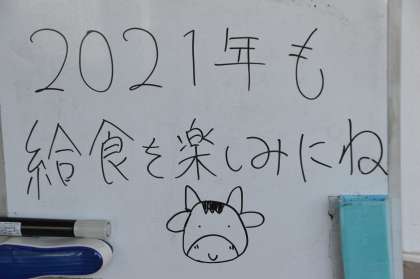 2021年も
給食を楽しみにね